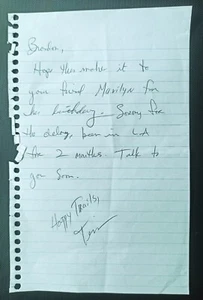 Brendan,
Hope this makes it to
your friend Marilyn for
her birthday. Sorry for
the delay, been in
for 2 months. Talk to
you soon.
Happy Trails,